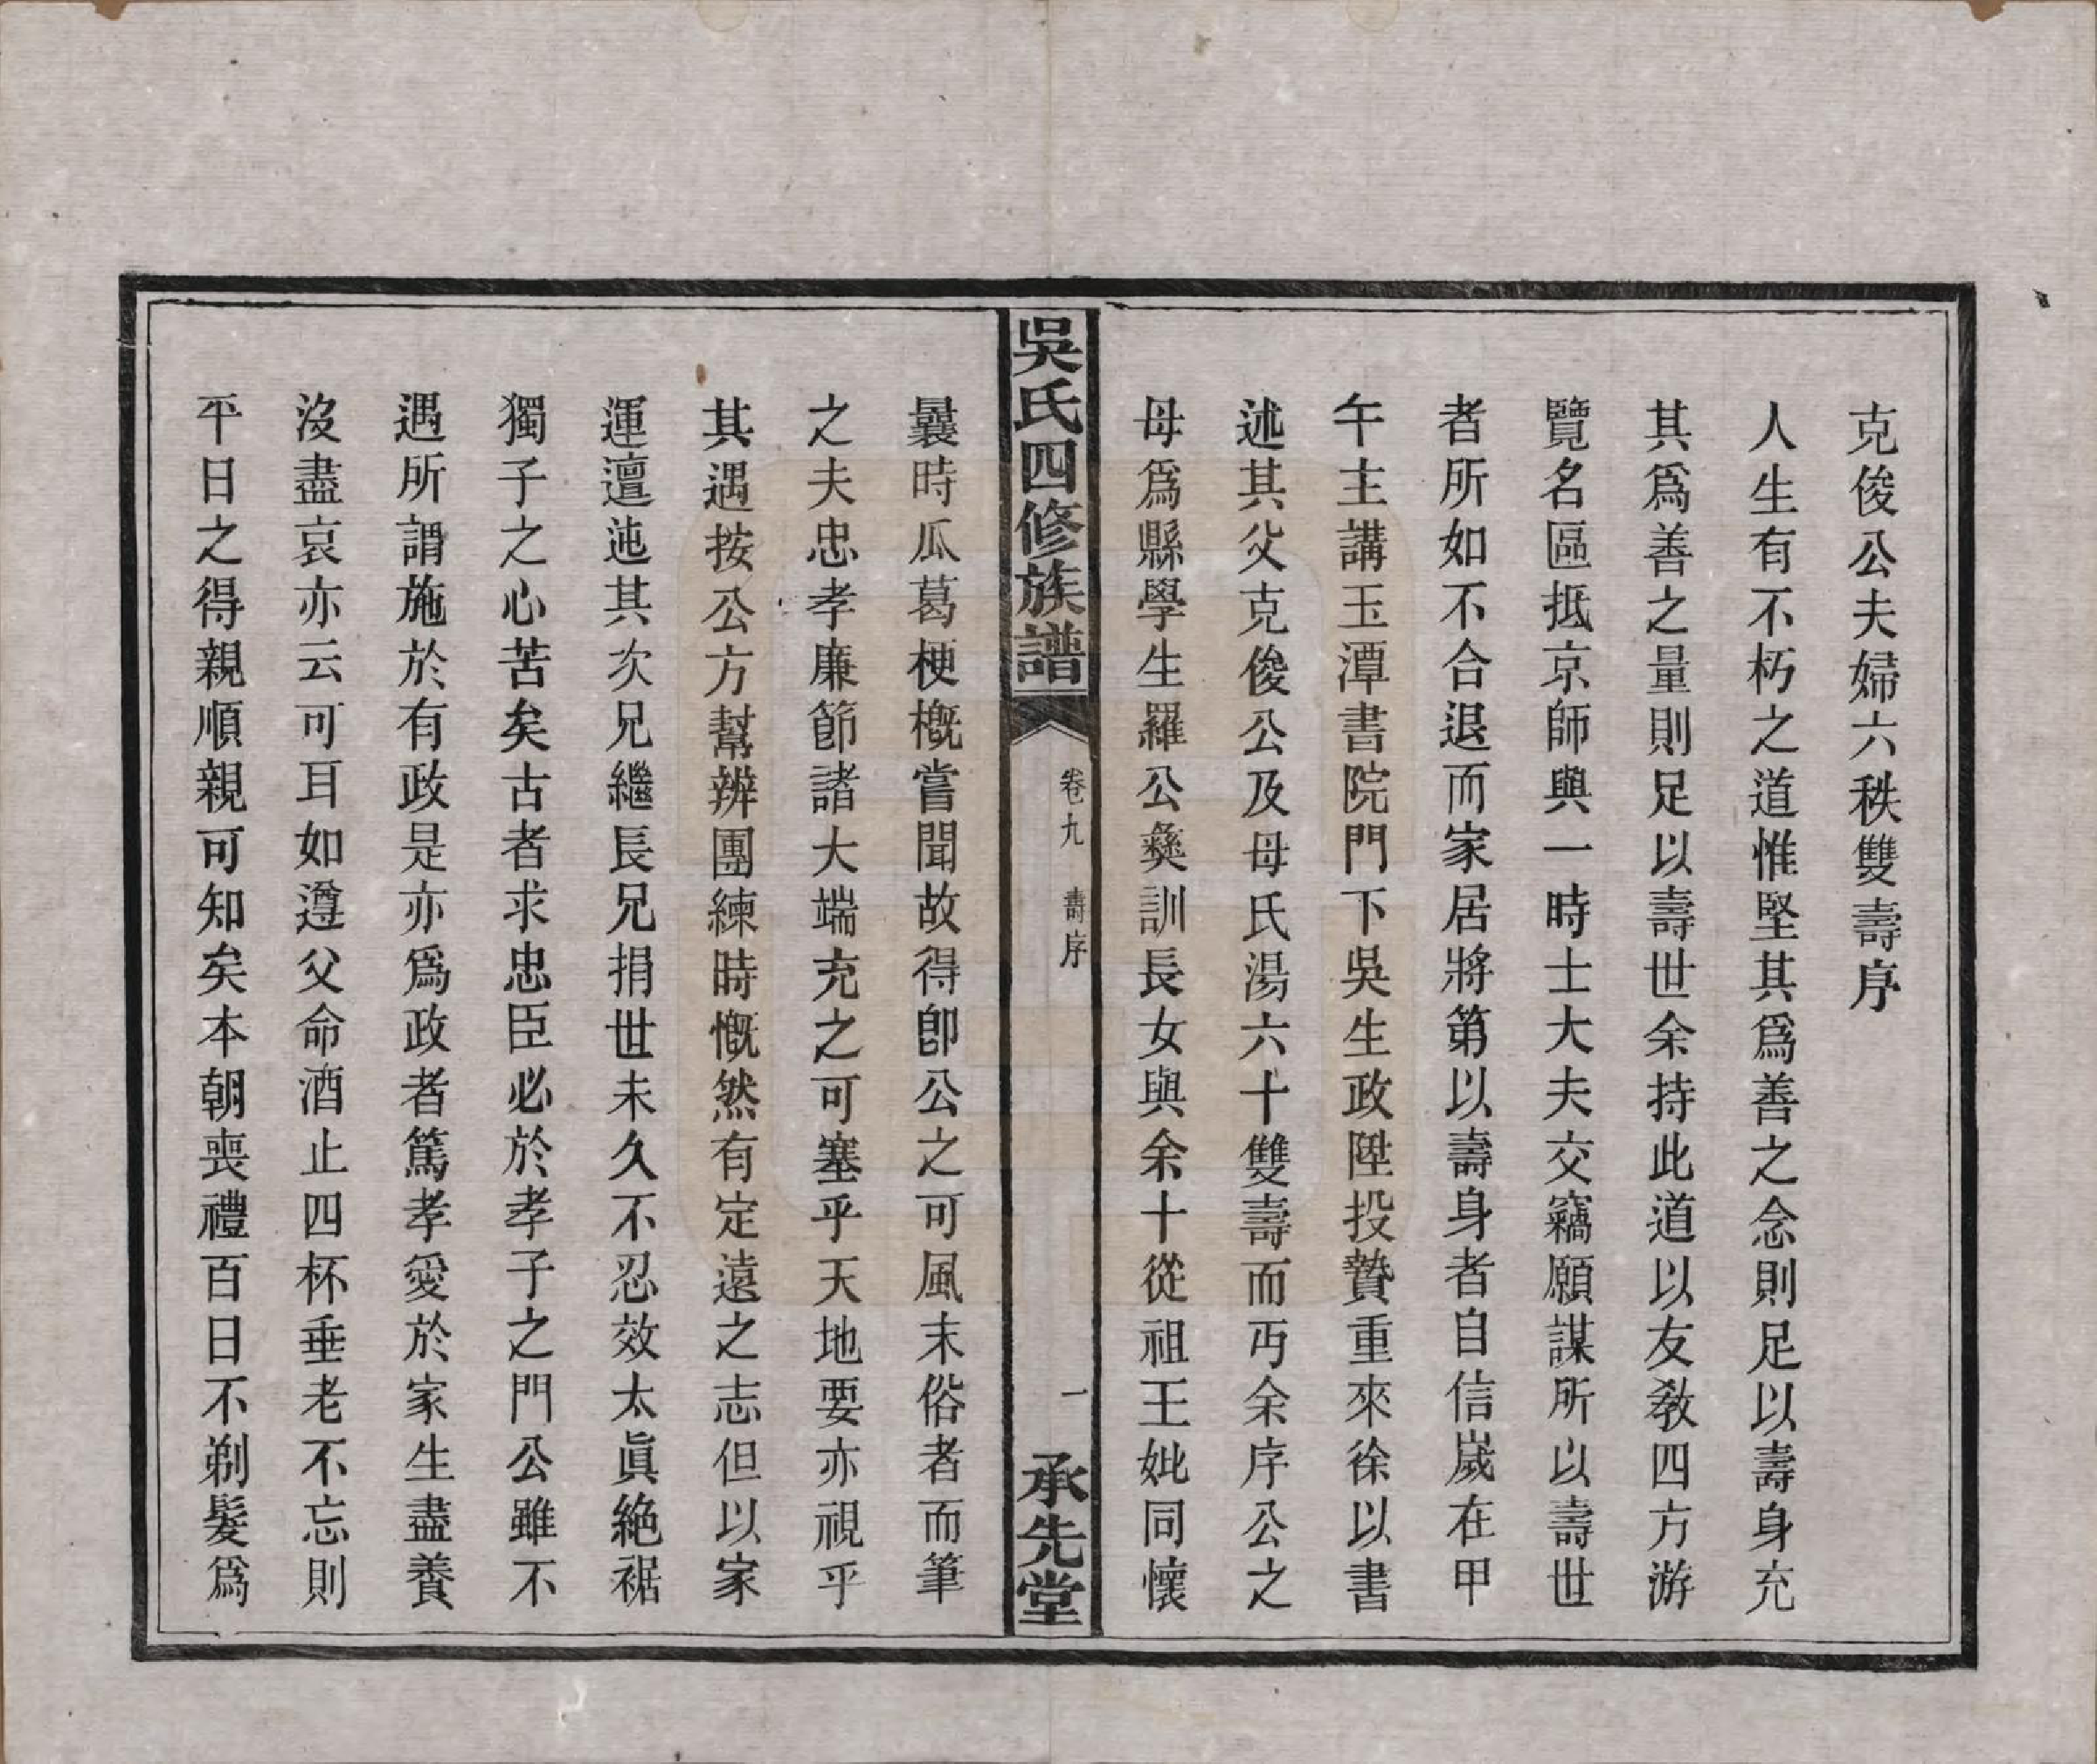 克俊公夫婦六秩雙壽序
人生有不朽之道惟堅其爲善之念則足以壽身充
其爲善之量則足以壽世余持此道以友敎四方游
覽名區抵京師與一時士大夫交竊願謀所以壽世
者所如不合退而家居將第以壽身者自信歲在甲
午主講玉潭書院門下吳生政陞投贄重來徐以書
述其父克俊公及母氏湯六十雙壽而丏余序公之
母爲縣學生羅公彝訓長女與余十從祖王妣同懷
吳氏四修族譜
卷九 壽序
一
承先堂
曩時瓜葛梗槪嘗聞故得卽公之可風末俗者而筆
之夫忠孝廉節諸大端充之可塞乎天地要亦視乎
其遇按公方幫辦團練時慨然有定遠之志但以家
運邅迍其次兄繼長兄捐世未久不忍效太眞絶裾
獨子之心苦矣古者求忠臣必於孝子之門公雖不
遇所謂施於有政是亦爲政者篤孝愛於家生盡養
沒盡哀亦云可耳如遵父命酒止四杯垂老不忘則
平日之得親順親可知矣本朝喪禮百日不剃髮爲